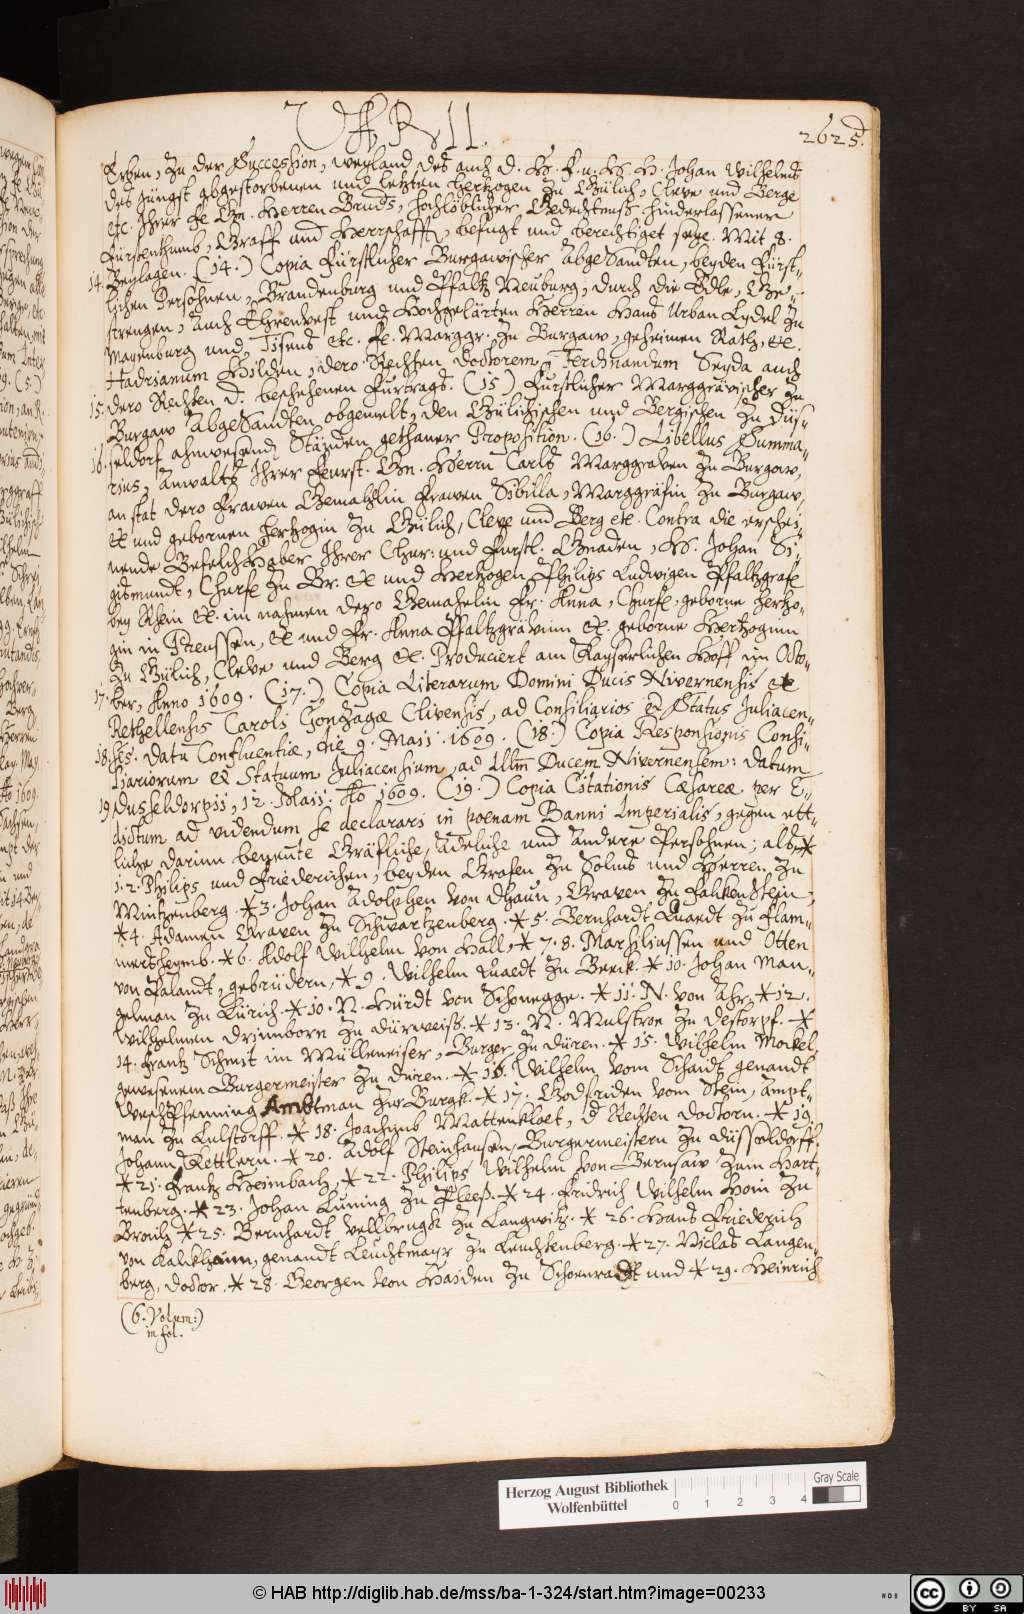 2625.
Erben, zu der Succession, weyland des auch d. H. F. u. H. H. Johan Wilhelms
des jüngst abgestorbenen und letzten Hertzogen zu Gülich, Cleve und Berge
etc. Ihrer Fe Gn. Herren Bruds, hochlöblicher Gedechtnuß hinderlassenen
Fürstenthumb, Graff und Herrschafft, befugt und berechtiget seye. Mit 8.
14. Beylagen. (14.) Copia Fürstlicher Burgawischer AbgeSandten, beyden Fürst-
lichen Persohnen, Brandenburg und Pfaltz Neuburg, durch die Edle, Ge-
strengen, auch Ehrenvest und Hochgelärten Herren Hans Urban Lydel zu
Mayenburg und Tisens etc. Fe. Marggr. zu Burgaw, geheimen Rath, etc.
Hadrianum Hilden, dero Rechten Doctorem, Ferdinandum Seyda auch
15. dero Rechten D. beschehenen Furtrags. (15) Fürstlicher Marggrävischer zu
Burgaw AbgeSandten obgemelt, den Gülichischen und Bergischen zu Düs-
16. seldorf ahnwesend Ständen gethaner Proposition. (16.) Libellus Summa-
rius, Anwalts Ihrer Feurst. Gn. Herrn Carls Marggraven zu Burgaw,
an stat dero Frawen Gemahlin Frawen Sibilla, Marggräfin zu Burgaw,
& und gebornen Hertzogin zu Gülich, Cleve und Berg etc. Contra die erschei-
nende BefelchHaber Ihrer Chur: und Fürstl. Gnaden, H. Johan Si-
gismundt, Churfe zu Br. & und Hertzogen Philips Ludwigen Pfaltzgrafe
bey Rhein &. im nahmen dero Gemahelin Fr. Anna, Churfe, geborne Hertzo-
gin in Preussen, & und Fr. Anna Pfaltzgrävinn &. geborne Hertzoginn
zu Gülich, Cleve und Berg &. Produciert am Kayserlichen Hoff im Octo-
17. ber, Anno 1609. (17.) Copia Literarum Domini Ducis Nivernensis &
Rethellensis Caroli Gonzagæ Clivensis, ad Consiliarios & Status Juliacen-
18. ses. Datu Confluentiæ, die 9. Maii. 1609. (18.) Copia Responsionis Consi-
liariorum et Statuum Juliacensium, ad Illm Ducem Nivernensem: Datum
19. Dusseldorpii, 12. Maii. Ao 1609. (19.) Copia Citationis Cæsareæ. per E-
dictum ad videndum se declarari in poenam Banni Imperialis, gegen ett-
liche darinn benente Gräfliche, Adeliche und andere Persohnen; als, *
1. 2. Philips und Friederichen, beyden Grafen zu Solms und Herren zu
Mintzenberg. * 3. Johan Adolphen von Dhaun, Graven zu Falkenstein,
* 4. Adamen Graven zu Schwartzenberg. * 5. Bernhardt Quaedt zu Flam-
mersheymb. * 6. Adolf Wilhelm von Hall, * 7. 8. Marsiliussen und Otten
von Palandt, gebrüdern, * 9. Wilhelm Quaedt zu Beeck. * 10. Johan Man-
gelman zu Lürich. * 10. N. Hürdt von Schönegge. * 11. N. von Ahr, * 12.
Wilhelmen Drimborn zu Dürweiß. * 13. N. Mulstroe zu Destorpf. *
14. Frantz Schmit im Mülleneiser, Burger zu Düren. * 15. Wilhelm Mockel
gewesenem Burgermeister zu Düren. * 16. Wilhelm vom Schaidt genandt
Weschpfenning Ambtman zur Burgk. * 17. Godfriden vom Stein, Ampt-
man zu Lülstorff. * 18. Joachimb Mattenkloet, d Rechten Doctorn. * 19
Johann Kettlern. * 20. Adolf Steinhausen, Burgermeistern zu Düsseldorff.
* 21. Frantz Heimbach, * 22. Philips Wilhelm von Bernsaw zum Hart-
tenberg. * 23. Johan Luning zu Pleeß. * 24. Fridrich Wilhelm Hoin zu
Broich * 25. Bernhardt Vellbrugk zu Langwitz. * 26. Hans Friederich
von Kalkhaim, genandt Leuchtmayr zu Leuchtenberg. * 27. Niclas Langen-
berg, Doctor. * 28. Georgen von Haiden zu Schoenradt und * 29. Heinrich
(6. Volum:)
in fol.
Herzog August Bibliothek
Wolfenbüttel
0 1 2 3 4
Gray Scale
© HAB http://diglib.hab.de/mss/ba-1-324/start.htm?image=00233
cc BY SA